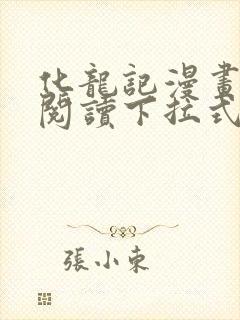 化龍記漫畫
閱讀下拉式
張小東